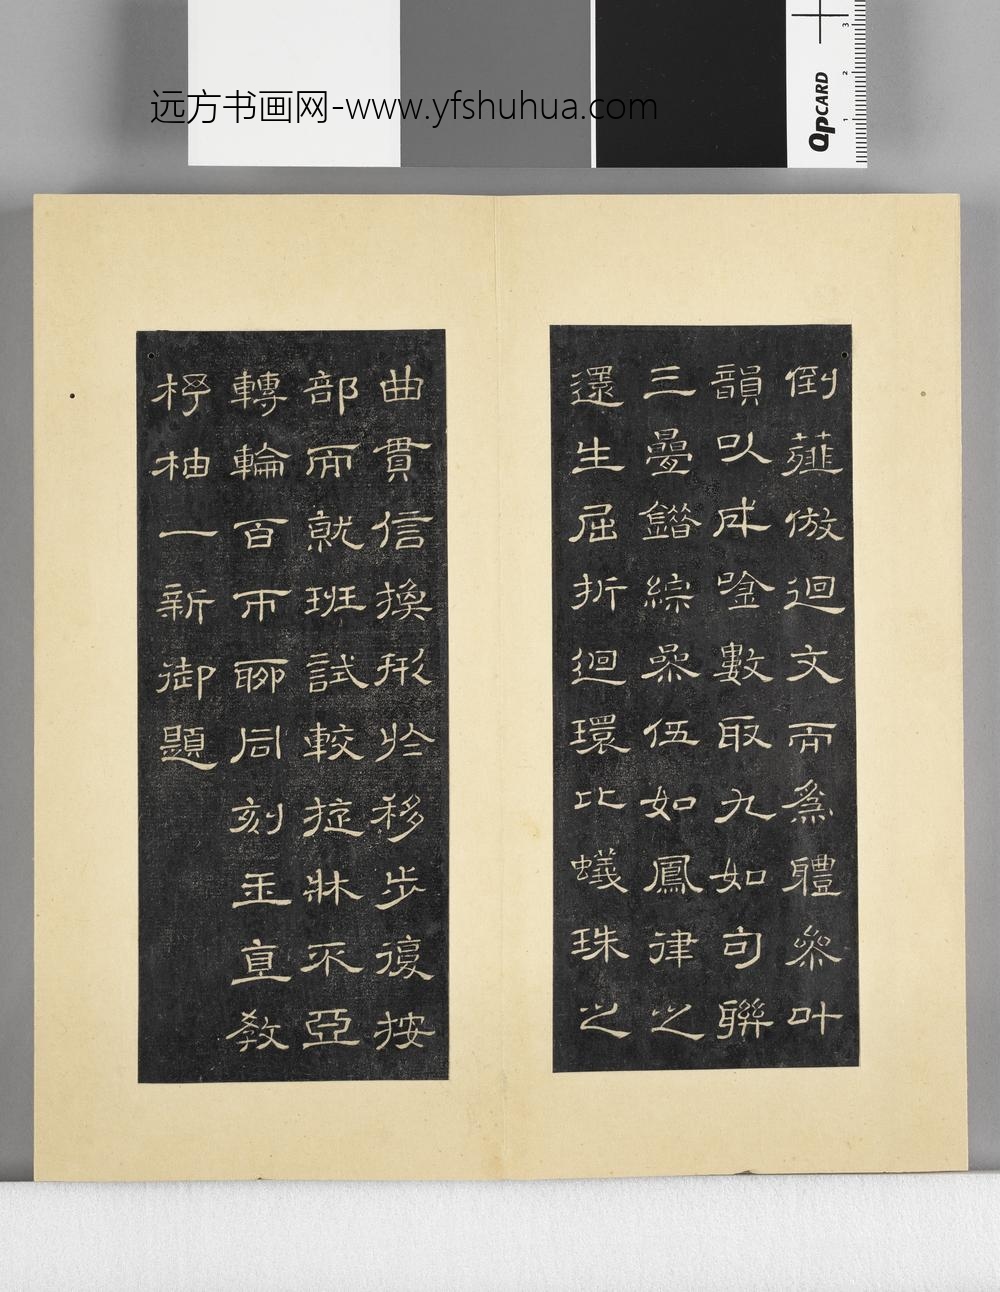 远方书画网-www.yfshuhua.com
QPCARD
1 2 3
倒薤倣迴文而為體參叶
韻以成唫數取九如句聯
三疊錯綜參伍如鳳律之
還生屈折迴環比蟻珠之
曲貫信換形於移步復按
部而就班試較挍牀不亞
轉輪百帀聊同刻玉直教
杼柚一新御題